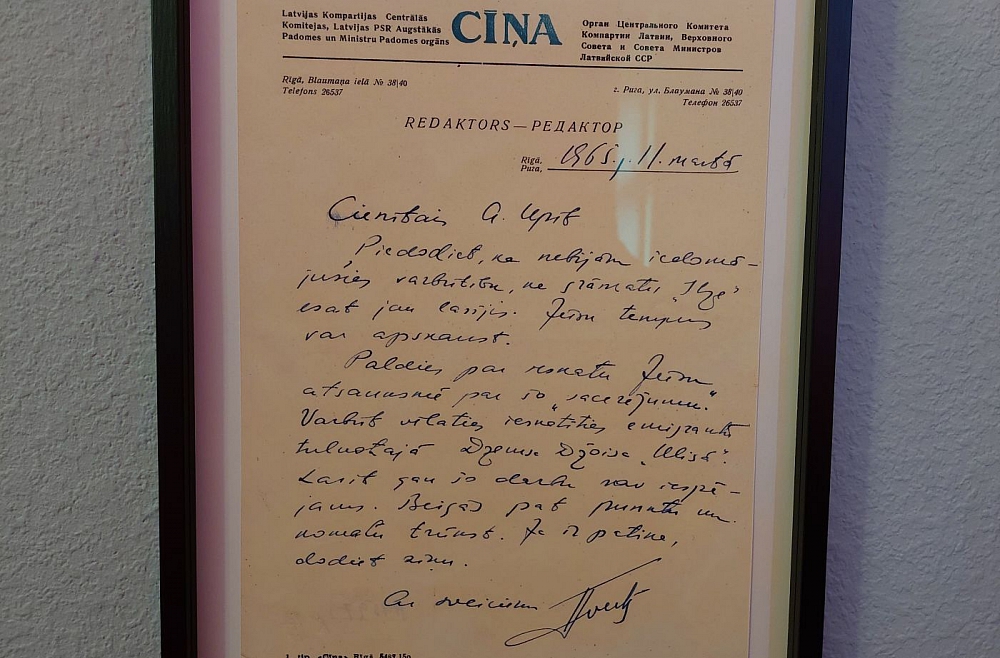 Latvijas Kompartijas Centrālās
Komitejas, Latvijas PSR Augstākās
Padomes un Ministru Padomes orgāns
CĪŅA
Орган Центрального Комитета
Компартии Латвии, Верховного
Совета и Совета Министров
Латвийской ССР
Rīgā, Blaumaņa ielā № 38|40
Telefons 26537
г. Рига, ул. Блаумана № 38|40
Телефон 26537
REDAKTORS — РЕДАКТОР
Rīgā,
Рига,
1965. 11. martā
Cienītais A. Upīt
Piedodiet, ka nebijām iedomā-
jušies varbūtību, ka grāmatu „Ilze"
esat jau lasījis. Jūsu tempus
var apskaust.
Paldies par Jūsu
atsauksmi par šo „sacerējumu".
Varbūt vēlaties ieskatīties emigrantu
tulkotajā Džemsa Džoisa „Ulisā".
Lasīt gan šo darbu nav iespē-
jams. Beigās pat punktu un
komatu trūkst. Ja tīk,
dodiet ziņu.
Ar sveicienu